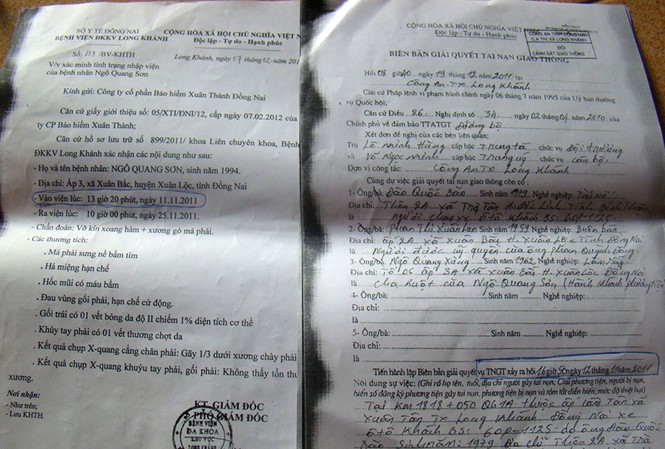 SỞ Y TẾ ĐỒNG NAI
BỆNH VIỆN ĐKKV LONG KHÁNH
Số: /BV-KHTH
V/v xác minh tình trạng nhập viện
của bệnh nhân Ngô Quang Sơn
CỘNG HÒA XÃ HỘI CHỦ NGHĨA VIỆT
Độc lập - Tự do - Hạnh phúc
Long Khánh, ngày tháng 02 năm
Kính gửi: Công ty cổ phần Bảo hiểm Xuân Thành Đồng Nai
Căn cứ giấy giới thiệu số: 05/XTI/ĐNI/12, cấp ngày 07.02.2012 của
ty CP Bảo hiểm Xuân Thành;
Căn cứ hồ sơ lưu trữ số 899/2011/ khoa Liên chuyên khoa, Bệnh
ĐKKV Long Khánh xác nhận các nội dung như sau:
- Họ và tên bệnh nhân: NGÔ QUANG SƠN, sinh năm 1994.
- Địa chỉ: Ấp 3, xã Xuân Bắc, huyện Xuân Lộc, tỉnh Đồng Nai
- Vào viện lúc: 13 giờ 20 phút, ngày 11.11.2011
- Ra viện lúc: 10 giờ 00 phút, ngày 25.11.2011.
- Chẩn đoán: Vỡ kín xoang hàm + xương gò má phải.
- Các thương tích:
Má phải sưng nề bầm tím
Há miệng hạn chế
Hốc mũi có máu bầm
Đau vùng gối phải, hạn chế cử động.
Gối trái có 01 vết bỏng da độ II chiếm 1% diện tích cơ thể
Khủy tay phải có 01 vết thương chợt da
Kết quả chụp X-quang cẳng chân phải: Gãy 1/3 dưới xương chày phải
Kết quả chụp X-quang khuỷu tay phải, gối phải: Không thấy tổn thư
xương.
Nơi nhận:
- Như trên;
- Lưu KHTH.
KT. GIÁM ĐỐC
PHÓ GIÁM ĐỐC
BỆNH VIỆN
ĐA KHOA
KHU VỰC
LONG KHÁNH
CỘNG HÒA XÃ HỘI CHỦ NGHĨA VIỆT
Độc lập - Tự do - Hạnh phúc
CÔNG AN TỈNH ĐỒNG NAI
C.A THỊ XÃ LONG KHÁNH
ĐỘI
CẢNH SÁT GIAO THÔNG
BIÊN BẢN GIẢI QUYẾT TAI NẠN GIAO THÔNG
Hồi 08 giờ 40, ngày 19 tháng 12 năm 2011 tại
Công an TX Long Khánh
Căn cứ Pháp lệnh vi phạm hành chính ngày 06 tháng 7 năm 1995 của Uỷ ban thường
vụ Quốc hội;
Căn cứ Điều 26. Nghị định số 34. ngày 02 tháng 04 năm 2010. của
Chính phủ về đảm bảo TTATGT đường bộ
Xét đơn đề nghị của các bên liên quan:
Tôi Lê Minh Hùng cấp bậc Trung tá chức vụ Đội trưởng
Vũ Ngọc Minh cấp bậc Trung úy chức vụ cán bộ
Đơn vị công tác: Công an TX Long Khánh
Cùng dự việc giải quyết tai nạn giao thông còn có:
1- Ông/bà Đào Quốc Bảo Sinh năm 1979 Nghề nghiệp: Tài xế
Địa chỉ:
người chạy xe ôtô khách BS: 60P-1125
2- Ông/bà: Phan Thị Xuân Lan Sinh năm 1959 Nghề nghiệp:
Địa chỉ: ấp 2A xã Xuân Bắc H. Xuân Lộc Tỉnh Đồng Nai
Người được ủy quyền của ông Phan Quỳnh Long
3- Ông/bà Ngô Quang Xứng Sinh năm 1962 Nghề nghiệp: Làm rẫy
Địa chỉ: Tổ 06 ấp 3A xã Xuân Bắc H. Xuân Lộc Đồng Nai
cha ruột của Ngô Quang Sơn (Hành khách
4- Ông/bà: Sinh năm Nghề nghiệp:
Địa chỉ:
là:
5- Ông/bà: Sinh năm Nghề nghiệp:
Địa chỉ:
là:
Tiến hành lập Biên bản giải quyết vụ TNGT xảy ra hồi 16 giờ 50 ngày 12 tháng 11 năm 2011
Nội dung sự việc: (Ghi rõ họ tên, tuổi, địa chỉ người gây tai nạn; Giới phương tiện, người bị nạn,
biển số đăng ký phương tiện gây tai nạn, phương tiện bị nạn và tóm tắt diễn biến, mức độ thiệt hại)
Tại Km 1818 + 050 QL1A thuộc ấp Tân Tấn xã
Xuân Tân TX Long Khánh Đồng Nai xe
ôtô khách BS: 60P-1125 do ông Đào Quốc
Bảo Sinh năm: 1979 Địa chỉ